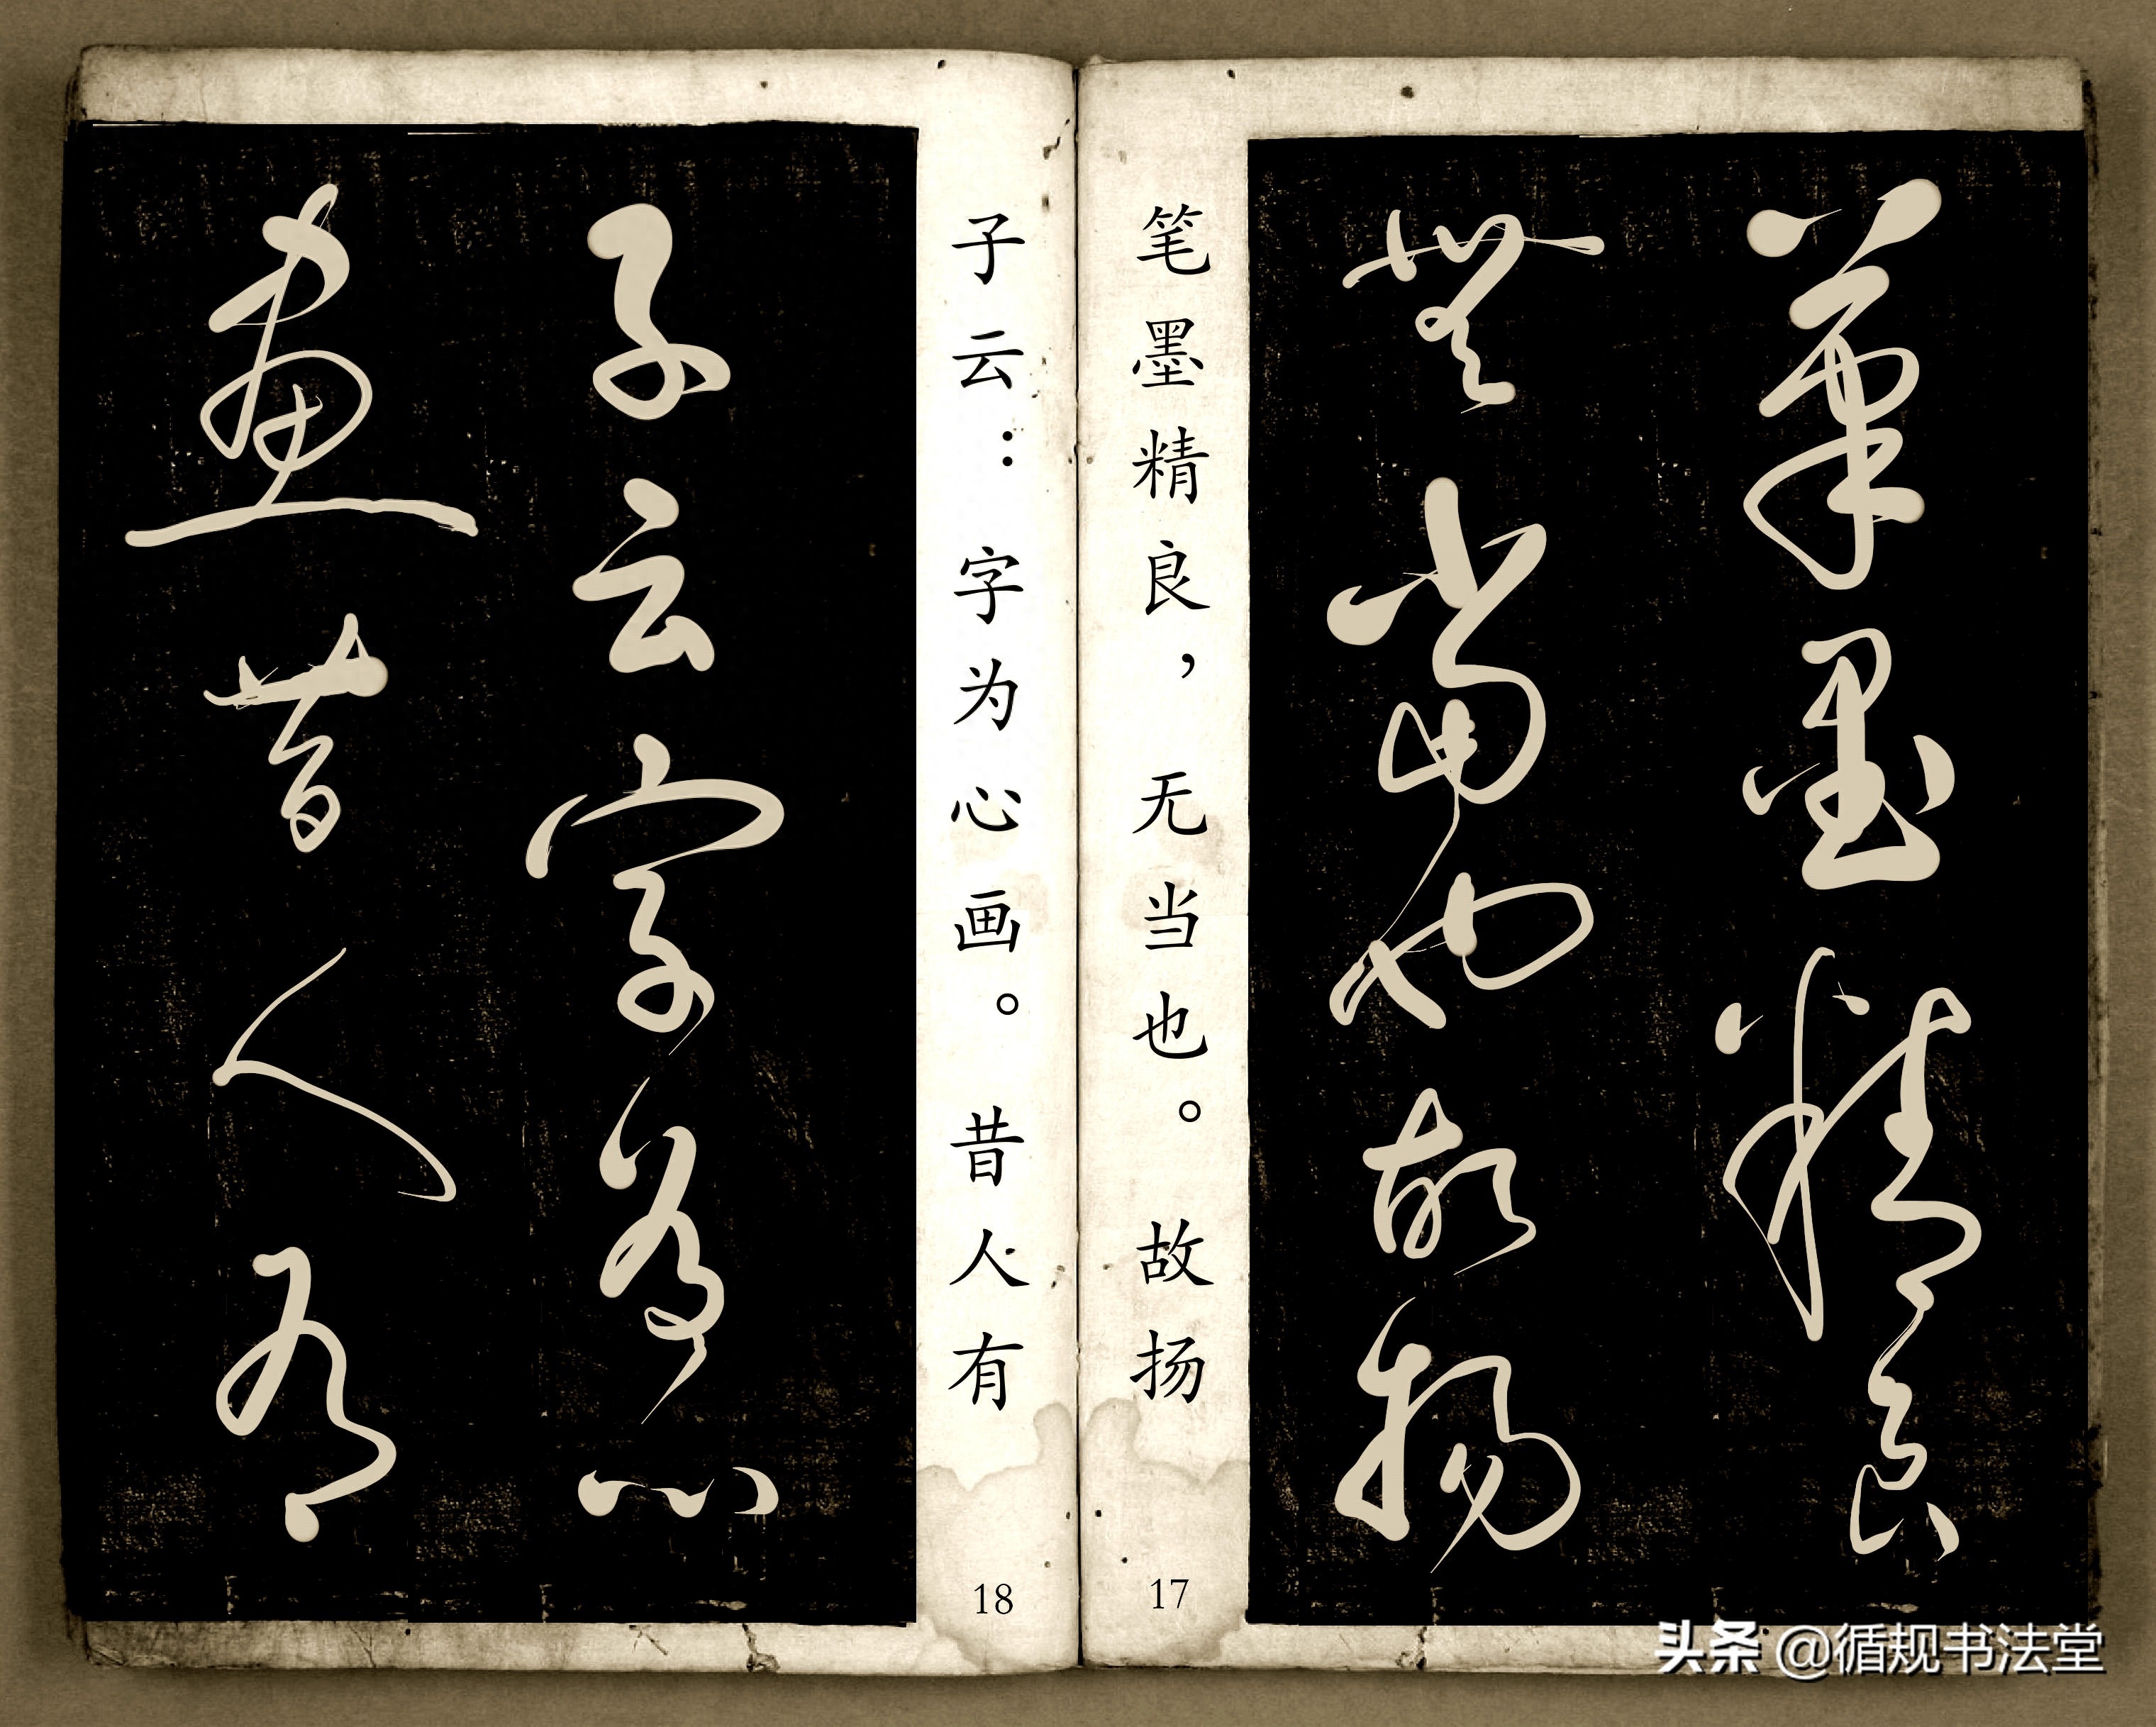 筆墨精良
無當也故揚
笔墨精良，无当也。故扬
17
子云：字为心画。昔人有
18
子云字為心
畫昔人有
头条 @循规书法堂